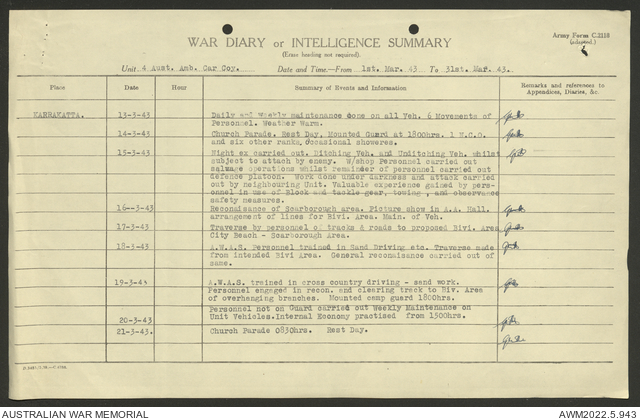 Army Form C.2118
(adapted.)
WAR DIARY or INTELLIGENCE SUMMARY
(Erase heading not required).
Unit. 4 Aust. Amb. Car Coy. Date and Time.—From 1st. Mar. 43 To 31st. Mar. 43.
Place Date Hour Summary of Events and Information Remarks and references to Appendices, Diaries, &c.
KARRAKATTA. 13-3-43 Daily and Weekly maintenance done on all Veh. 6 Movements of
Personnel. Weather Warm.
14-3-43 Church Parade. Rest Day. Mounted Guard at 1800hrs. 1 N.C.O.
and six other ranks. Occasional showeres.
15-3-43 Night ex carried out. Ditching Veh. and Unditching Veh. whilst
subject to attach by enemy. W/shop Personnel carried out
salvage operations whilst remainder of personnel carried out
defence platoon. Work done under darkness and attack carried
out by neighbouring Unit. Valuable experience gained by pers-
onnel in use of Block and tackle gear, towing, and observance
safety measures.
16--3-43 Reconaisance of Scarborough area. Picture show in A.A. Hall.
arrangement of lines for Bivi. Area. Main. of Veh.
17-3-43 Traverse by personnel of tracks & roads to proposed Bivi. Area
City Beach - Scarborough Area.
18-3-43 A.W.A.S. Personnel trained in Sand Driving etc. Traverse made
from intended Bivi Area. General reconaisance carried out of
same.
19-3-43 A.W.A.S. trained in cross country driving - sand work.
Personnel engaged in recon. and clearing track to Biv. Area
of overhanging branches. Mounted camp guard 1800hrs.
Personnel not on Guard carried out Weekly Maintenance on
20-3-43 Unit Vehicles. Internal Economy practised from 1500hrs.
21-3-43. Church Parade 0830hrs. Rest Day.
AUSTRALIAN WAR MEMORIAL AWM2022.5.943